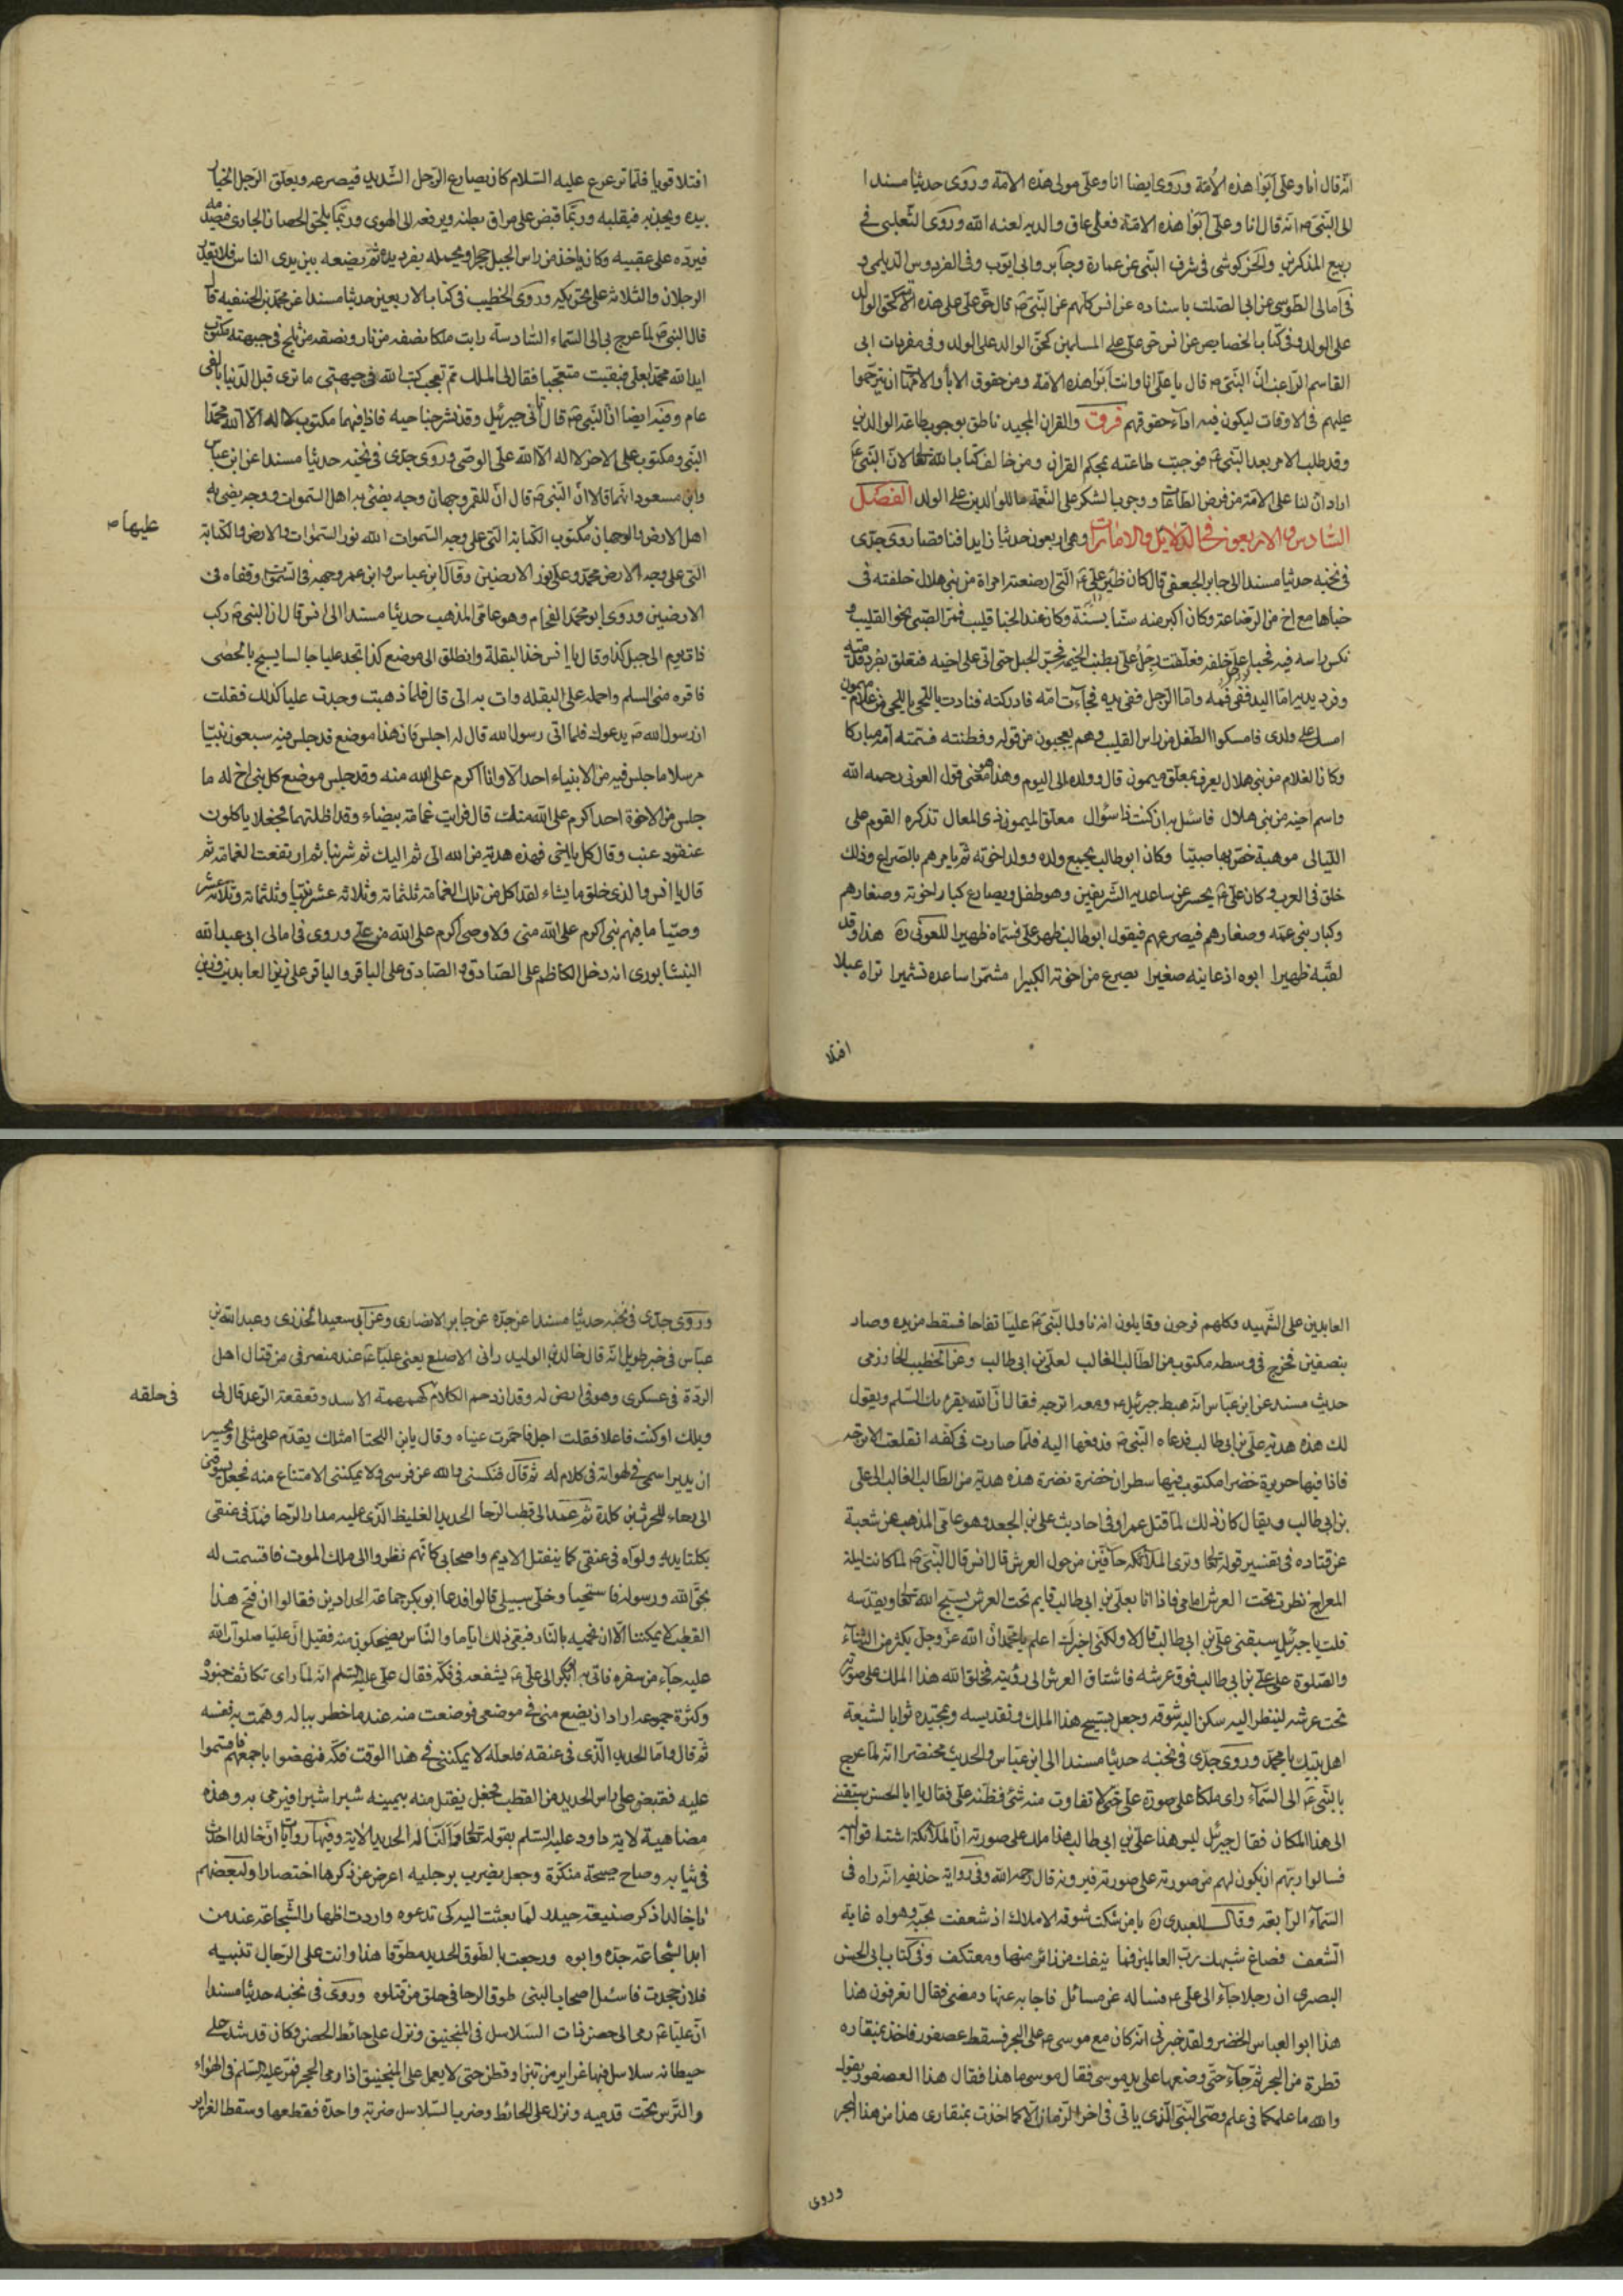 انه قال انا وعلى ابوا هذه الامة وروى ايضا انا وعلى مولى هذه الامة وروى حديثا مسندا
الى النبى ص انه قال انا وعلى ابوا هذه الامة فعلى عاق والديه لعنه الله وروى الثعلبى فى
ربيع المذكرين والخركوشى فى شرف النبى عن عمارة وجابر وابى ايوب وفى الفردوس الديلمى و
فى امالى الطوسى عن ابى الصلت باسناده عن انس كلهم عن النبى ص قال حق على على هذه الامة كحق الوالد
على الولد وفى كتاب الخصايص عن انس حق على على المسلمين كحق الوالد على الولد وفى مفردات ابى
القاسم الراغب ان النبى ص قال يا على انا وانت ابوا هذه الامة ومن حقوق الاباء والامهات ان يترحموا
عليهم فى الاوقات ليكون فيه اداء حقوقهم فرق والقران المجيد ناطق بوجوب طاعة الوالدين
وقد طلب الامر بعد النبى ص فوجبت طاعته بمحكم القران ومن خالف كتاب الله تعالى لان النبى ع
اراد ان لنا على الامة من فرض الطاعات ووجوب الشكر على النعمة ما للوالدين على الولد الفصل
السادس والاربعون فى الدلايل والامارات وهى اربعون حديثا زايدا فنافصا روى جدى
فى نخبه حديثا مسندا الى جابر الجعفى قال كان ظير على ع التى ارضعته امراة من بنى هلال خلفته فى
خباها مع اخ من الرضاعة وكان اكبر منه سنا بسنة وكان عند الخبا قليب فمر الصبى نحو القليب و
نكس راسه فيه فحبا على خلفه فعلقت رجل على بطنب الخيمة فجر الحبل حتى اتى على اخيه فتعلق بفرد قدميه
وفرد يديه اما اليد ففى فمه واما الرجل ففى يديه فجاءت امه فادركته فنادت يا للحى يا للحى من غلام ميمون
امسك على ولدى فامسكوا الطفل من راس القليب وهم يعجبون من قوته وفطنته فسمته امه مباركا
وكان الغلام من بنى هلال يعرف بمعلق ميمون قال وولده الى اليوم وهذا معنى قول العونى رحمه الله
واسم اخيه من بنى هلال فاسئل به ان كنت ذا سؤال معلق الميمون ذى المعال تذكره القوم على
الليالى موهبة خص بها صبيا وكان ابو طالب يجمع ولده وولد اخوته ثم يامرهم بالصراع وذلك
خلق فى العرب وكان على ع يحسر عن ساعديه الشريفين وهو طفل ويصارع كبار اخوته وصغارهم
وكبار بنى عمه وصغارهم فيصرعهم فيقول ابو طالب ظهر على فسماه ظهيرا للعونى ره هذا وقد
لقبه ظهيرا ابوه اذ عاينه صغيرا يصرع من اخوته الكبيرا مشمرا ساعده تشميرا تراه عبلا
افتلا
افتلا قويا فلما ترعرع عليه السلام كان يصارع الرجل الشديد فيصرعه ويعلق الرجل الجبار
بيده ويجذبه فيقلبه وربما قبض على مراق بطنه ويرفعه الى الهوى وربما يلحق الحصان الجارى فيصدمه
فيرده على عقبيه وكان ياخذ من راس الجبل حجرا ويحمله بفرد يده ثم يضعه بين يدى الناس فلا يقدر
الرجلان والثلاثة على تحريكه وروى الخطيب فى كتاب الاربعين حديثا مسندا عن محمد بن الحنفيه قال
قال النبى ص لما عرج بى الى السماء السادسة رايت ملكا نصفه من نار ونصفه من ثلج فى جبهته مكتوب
ايد الله محمد بعلى فبقيت متعجبا فقال لى الملك مم تعجب كتب الله فى جبهتى ما ترى قبل الدنيا بالفى
عام وفيه ايضا ان النبى ص قال اتى جبرئيل وقد نشر جناحيه فاذا فيهما مكتوب لا اله الا الله محمد
النبى ومكتوب على الاخر لا اله الا الله على الوصى وروى جدى فى نخبه حديثا مسندا عن ابن عباس
وابن مسعود انهما قالا ان النبى ص قال ان للقمر وجهان وجه يضئ به اهل السموات ووجه يضئ به
اهل الارض والوجهان مكتوب الكتابة التى على وجه السموات الله نور السموات والارض والكتابة
عليها ص
التى على وجه الارض محمد وعلى نور الارضين وقال ابن عباس وابن عمر وجهه فى السموات وقفاه فى
الارضين وروى ابو محمد الفحام وهو عامى المذهب حديثا مسندا الى انس قال ان النبى ص ركب
ذات يوم الى جبل كذا وقال يا انس خذ البقلة وانطلق الى موضع كذا تجد عليا جالسا يسبح بالحصى
فاقره منى السلم واحمله على البقله وات به الى قال فلما ذهبت وجدت عليا كذلك فقلت
ان رسول الله ص يدعوك فلما اتى رسول الله قال له اجلس فان هذا موضع قد جلس فيه سبعون نبيا
مرسلا ما جلس فيه من الانبياء احد الا وانا اكرم على الله منه وقد جلس موضع كل نبى اخ له ما
جلس من الاخوة احد اكرم على الله منك قال فرايت غمامة بيضاء وقد اظلتهما فجعلا ياكلون
عنقود عنب وقال كل يا اخى فهذه هدية من الله الى ثم اليك ثم شربا ثم ارتفعت الغمامة ثم
قال يا انس والذى خلق ما يشاء لقد اكل من تلك الغمامة ثلثمائة وثلاثة عشر نبيا وثلثمائة وثلثة عشر
وصيا ما فيهم نبى اكرم على الله منى ولا وصى اكرم على الله من على وروى فى امالى ابى عبد الله
النيشابورى انه دخل الكاظم على الصادق والصادق على الباقر والباقر على زين العابدين وزين
العابدين على الشهيد وكلهم فرحون وقايلون انه ناول النبى ص عليا تفاحا فسقط من يده وصار
بنصفين فخرج فى وسطه مكتوب من الطالب الغالب لعلى بن ابى طالب وعن الخطيب الخوارزمى
حديث مسند عن ابن عباس انه هبط جبرئيل ع ومعه اترجه فقال ان الله يقرئك السلم ويقول
لك هذه هدية على بن ابى طالب فدعاه النبى ص فدفعها اليه فلما صارت فى كفه انفلقت الاترجه
فاذا فيها حريرة خضرا مكتوب فيها سطران خضرة نضرة هذه هدية من الطالب الغالب الى على
بن ابى طالب ويقال كان ذلك لما قتل عمرا وفى احاديث على بن الجعد وهو عامى المذهب عن شعبة
عن قتاده فى تفسير قوله تعالى وترى الملائكة حافين من حول العرش قال انس قال النبى ص لما كانت ليلة
المعراج نظرت تحت العرش امامى فاذا انا بعلى بن ابى طالب قايم تحت العرش يسبح الله تعالى ويقدسه
قلت يا جبرئيل سبقنى على بن ابى طالب قال لا ولكنى اخبرك اعلم يا محمد ان الله عز وجل يكثر من الثناء
والصلوة على على بن ابى طالب فوق عرشه فاشتاق العرش الى رؤيته فخلق الله هذا الملك على صورته
تحت عرشه لينظر اليه سكن اليه شوقه وجعل يسبح هذا الملك وتقديسه وتمجيده ثوابا لشيعة
اهل بيتك يا محمد وروى جدى فى نخبه حديثا مسندا الى ابن عباس والحديث مختصر انه لما عرج
بالنبى ع الى السماء راى ملكا على صورة على حتى لا تفاوت منه شئ فظنه على فقال يا ابا الحسن سبقتنى
الى هذا المكان فقال جبرئيل ليس هذا على بن ابى طالب هذا ملك على صورته ان الملائكة اشتاقوا اليه
فسالوا ربهم ان يكون لهم من صورته على صورته فيرونه قال رحمه الله وفى رواية حذيفه انه راه فى
السماء الرابعة وقال العبدى ره يا من شكت شوقه الاملاك اذ شعفت بحبه وهواه غاية
الشعف فصاغ شبهك رب العالمين فما ينفك من زائر منها ومعتكف وفى كتاب ابى الحسن
البصرى ان رجلا جاء الى على ع فساله عن مسائل فاجابه عنها ومضى فقال تعرفون هذا
هذا ابو العباس الخضر ولقد خبرنى انه كان مع موسى ع على البحر فسقط عصفور فاخذ بمنقاره
قطرة من البحر ثم جاء حتى وضعها على يد موسى فقال موسى ما هذا فقال هذا العصفور يقول
والله ما علمكما فى علم وصى النبى الذى ياتى فى اخر الزمان الا كما اخذت بمنقارى هذا من هذا البحر
وروى
وروى جدى فى نخبه حديثا مسندا عن جده عن جابر الانصارى وعن ابى سعيد الخدرى وعبد الله بن
عباس فى خبر طويل انه قال خالد بن الوليد رانى الاصلع يعنى عليا ع عند منصرفى من قتال اهل
الردة فى عسكرى وهو فى ارض له وقد ازدحم الكلام كهمهمة الاسد وقعقعة الرعد قال لى
فى حلقه
ويلك اوكنت فاعلا فقلت اجل فاحمرت عيناه وقال يابن اللخنا امثلك يقدم على مثلى او يجسر
ان يدير اسمى فى لهواته فى كلام له ثم قال فنكسنى والله عن فرسى ولا يمكننى الامتناع منه فجعل يسوقنى
الى رحاء للحرث بن كلدة ثم عمد الى قطب الرحا الحديد الغليظ الذى عليه مدار الرحا فمده فى عنقى
بكلتا يديه ولواه فى عنقى كما ينفتل الاديم واصحابى كانهم نظروا الى ملك الموت فاقسمت له
بحق الله ورسوله فاستحيا وخلى سبيلى قالوا فدعا ابو بكر جماعة الحدادين فقالوا ان فتح هذا
القطب لا يمكننا الا ان نحميه بالنار فبقى ذلك اياما والناس يضحكون منه فقيل ان عليا صلوات الله
عليه جاء من سفره فاتى به ابو بكر الى على ع يشفعه فى فكه فقال على عليه السلم انه لما راى تكاثف جنوده
وكثرة جموعه اراد ان يضع منى فى موضعى فوضعت منه عند ما خطر بباله وهمت به نفسه
ثم قال واما الحديد الذى فى عنقه فلعله لا يمكننى فى هذا الوقت فكه فنهضوا باجمعهم فاقسموا
عليه فقبض على راس الحديد من القطب فجعل يفتل منه بيمينه شبرا شبرا فيرمى به وهذه
مضاهية لاية داود عليه السلم بقوله تعالى والنا له الحديد الاية وفيها روايات ان خالدا احدث
فى ثيابه وصاح صيحة منكرة وجعل يضرب برجليه اعرض عن ذكرها اختصارا ولبعضهم
يا خالد اذكر صنيعة حيدر لما بعثت اليه كى تدعوه واردت اظهار الشجاعة عند من
ابدا لشجاعة جده وابوه ورجعت بالطوق الحديد مطوقا هذا وانت على الرجال تنبيه
فلان جحدت فاسئل اصحاب النبى طوق الرحا فى حلق من قتلوه وروى فى نخبه حديثا مسندا
ان عليا ع رمى الى حصن ذات السلاسل فى المنجنيق ونزل على حائط الحصن وكان قد شد على
حيطانه سلاسل فيها غراير من تبن او قطن حتى لا يعمل على المنجنيق اذا رمى الحجر فمر عليه السلم فى الهواء
والترس تحت قدميه ونزل على الحائط وضرب السلاسل ضربة واحدة فقطعها وسقط الغراير